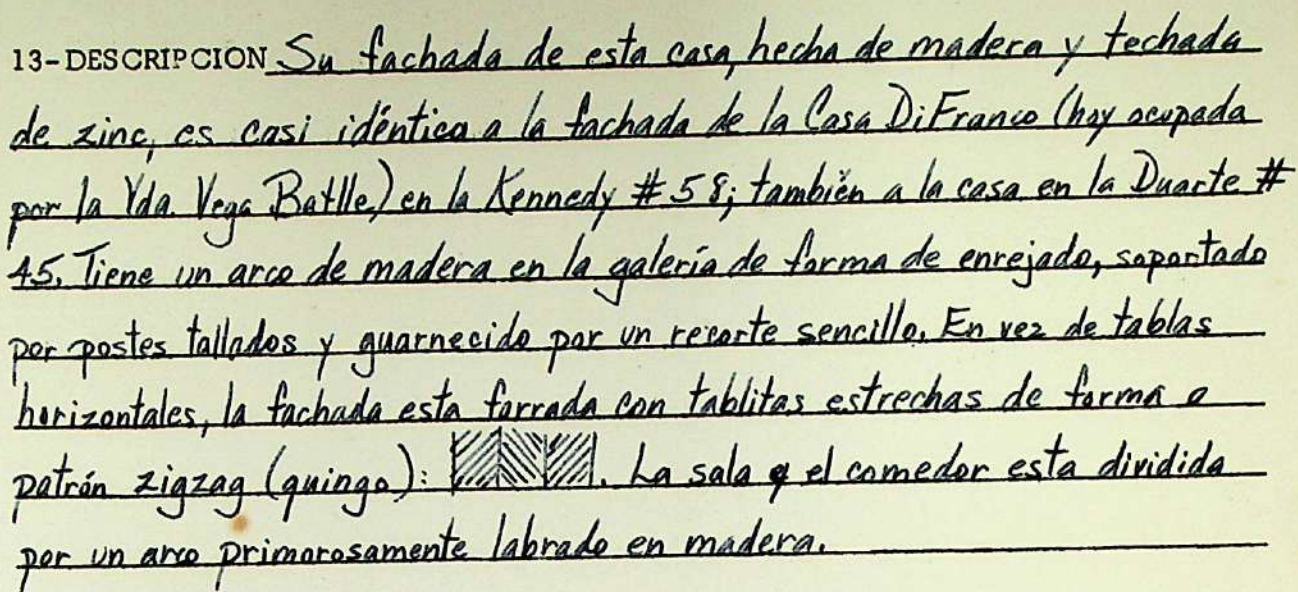 13-DESCRIPCION Su fachada de esta casa, hecha de madera y techada
de zinc, es casi idéntica a la fachada de la Casa DiFranco (hoy ocupada
por la Vda. Vega Batlle) en la Kennedy #58; también a la casa en la Duarte #
45. Tiene un arco de madera en la galería de forma de enrejado, soportado
por postes tallados y guarnecido por un recorte sencillo. En vez de tablas
horizontales, la fachada esta forrada con tablitas estrechas de forma o
patrón zigzag (quingo): . La sala el comedor esta dividida
por un arco primorosamente labrado en madera.